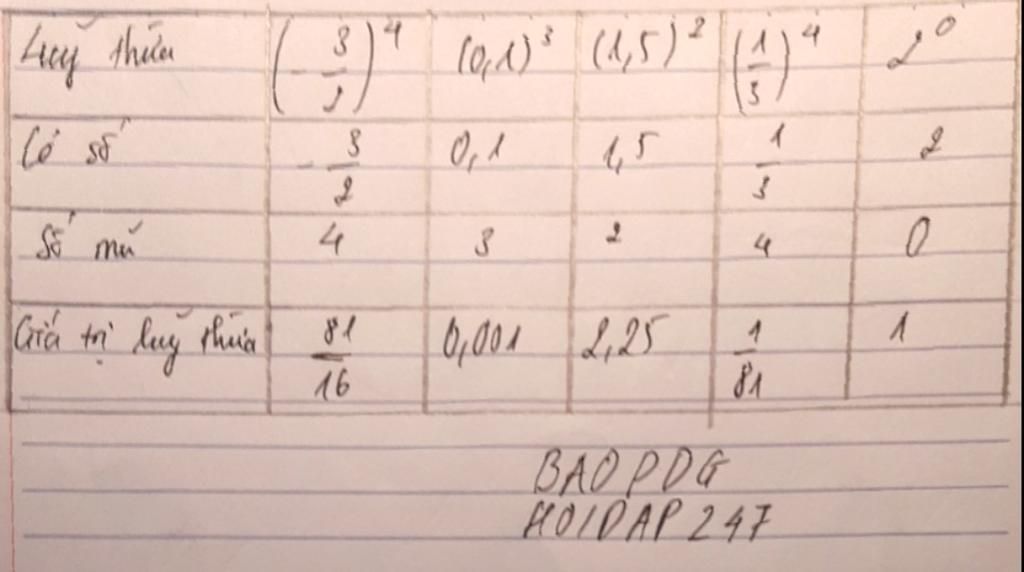 Luỹ thừa (-3/2)^4 (0,1)^3 (1,5)^2 (1/3)^4 2^0
Cơ số -3/2 0,1 1,5 1/3 2
Số mũ 4 3 2 4 0
Giá trị luỹ thừa 81/16 0,001 2,25 1/81 1
BAOPDG
HOIDAP247